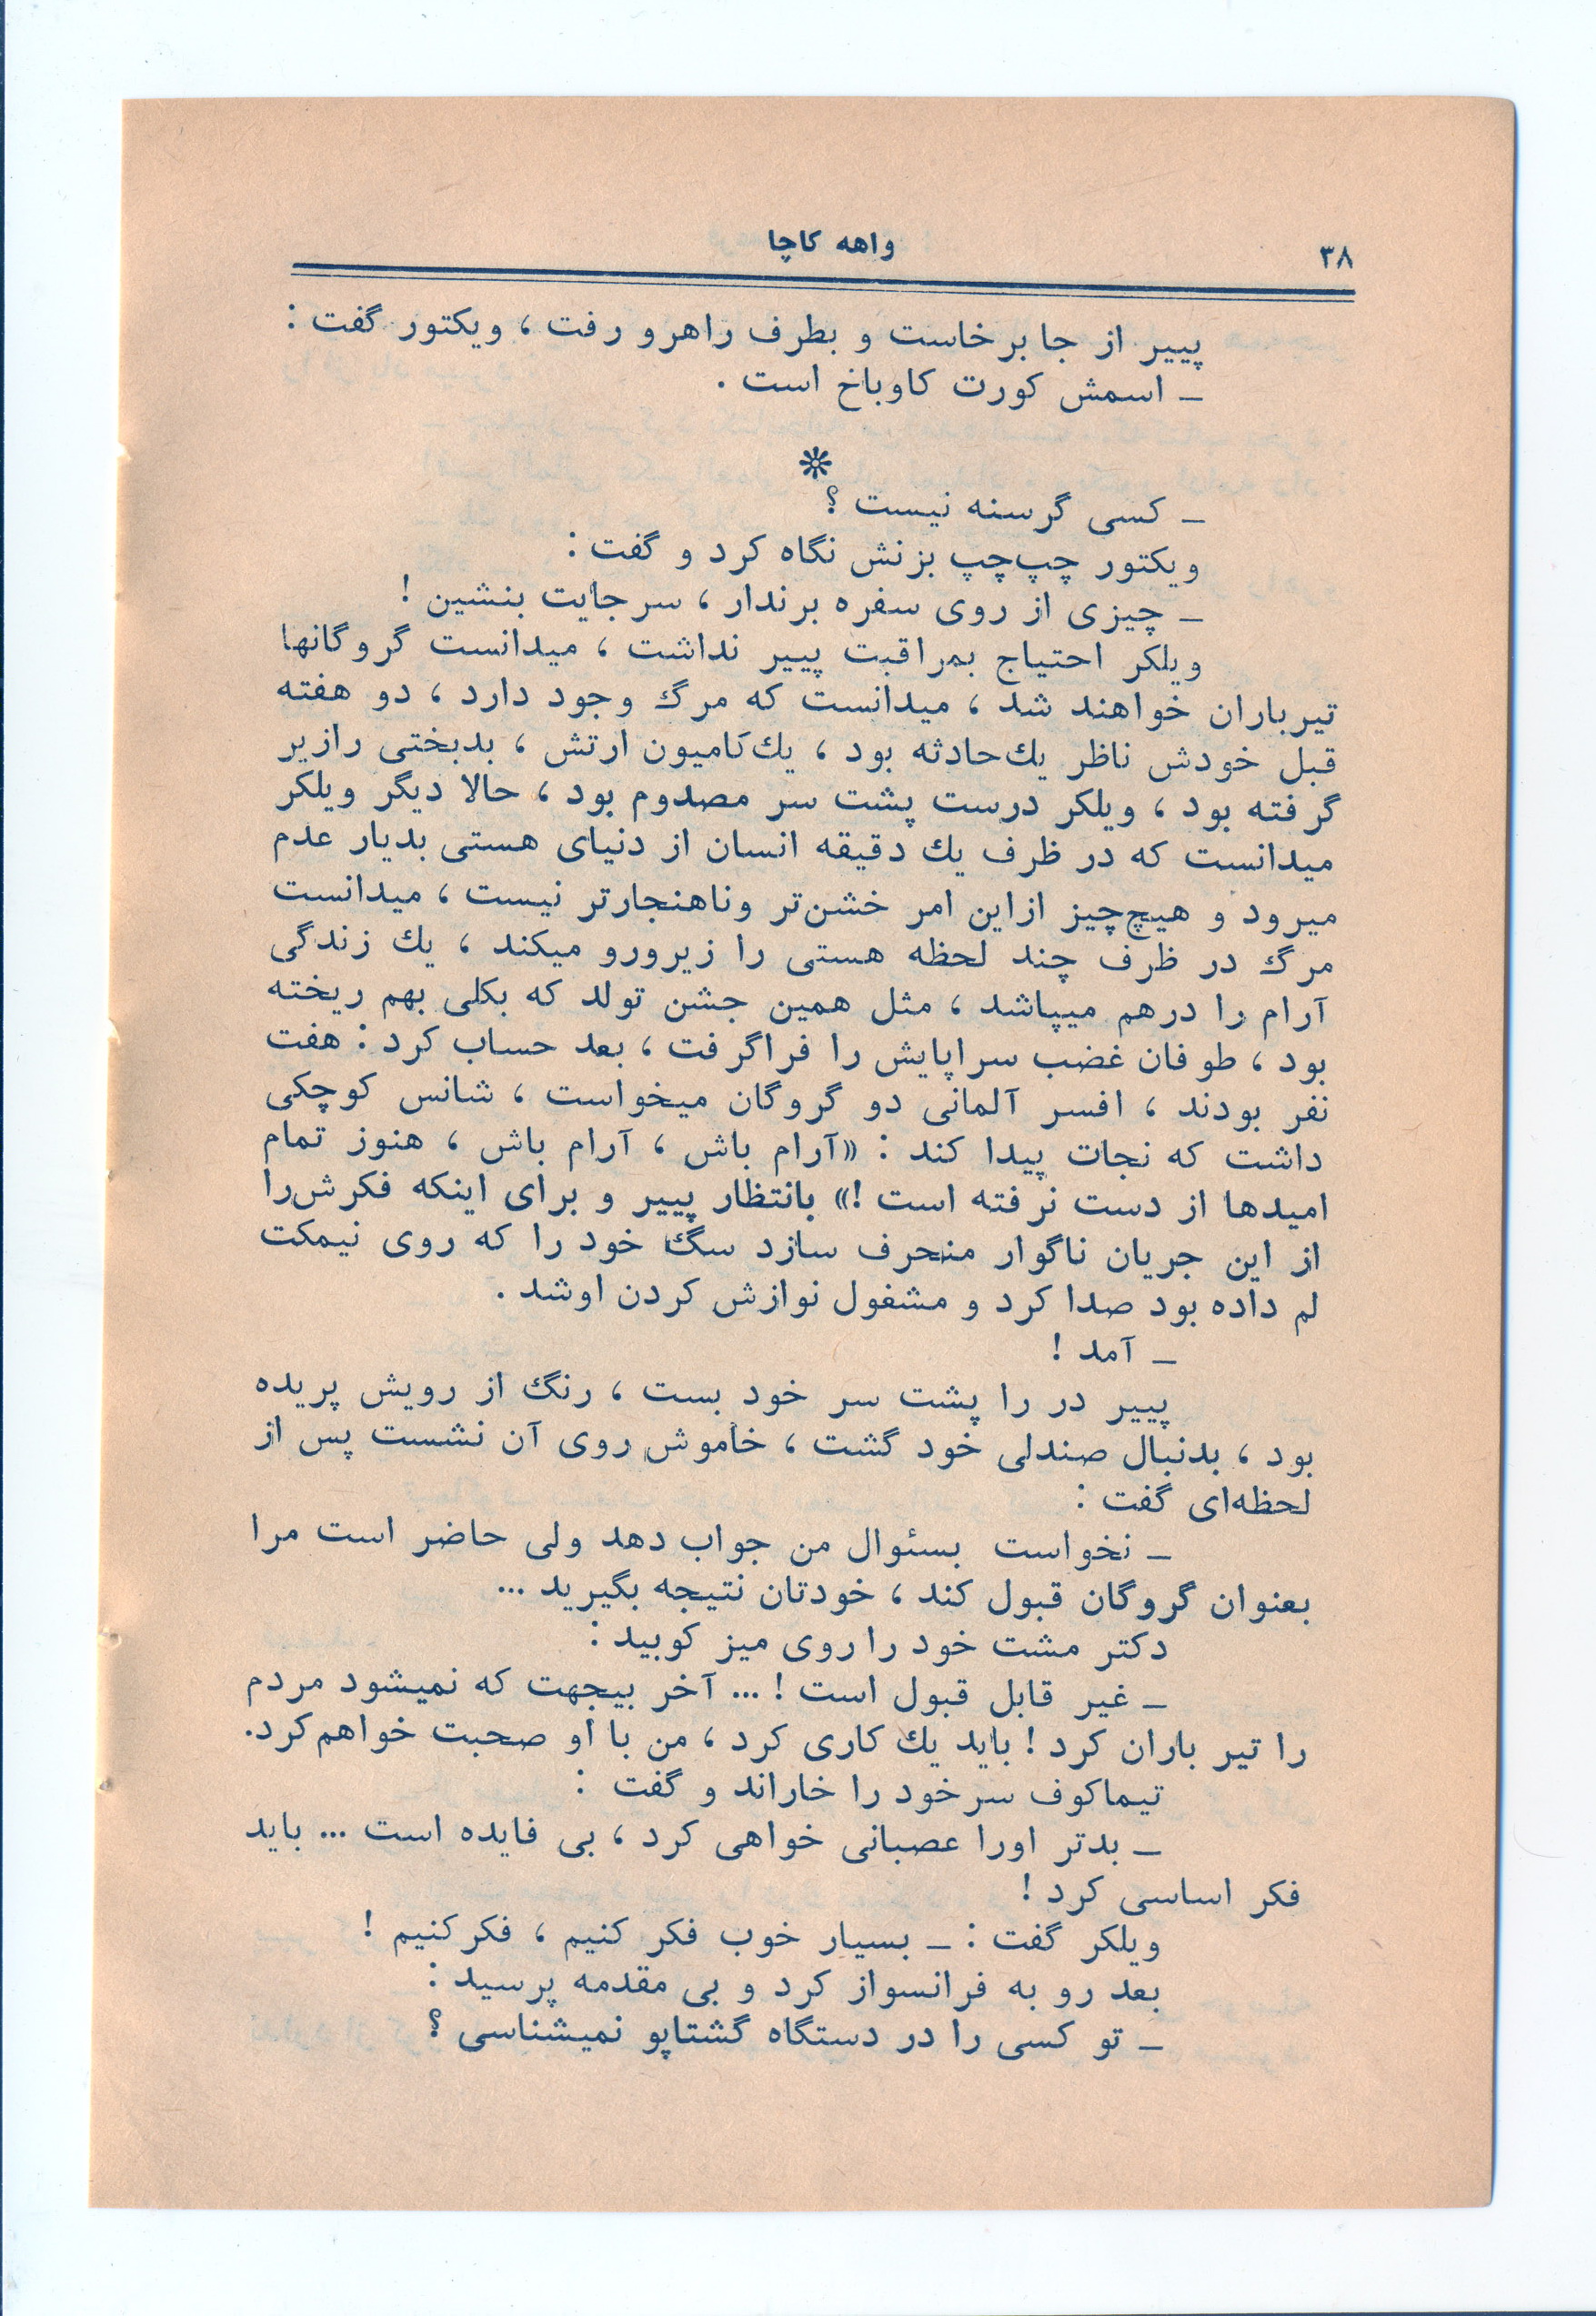 ۳۸
واهه کاچا
پییر از جا برخاست و بطرف راهرو رفت ، ویکتور گفت :
ـ اسمش کورت کاوباخ است .
❊
ـ کسی گرسنه نیست ؟
ویکتور چپ‌چپ بزنش نگاه کرد و گفت :
ـ چیزی از روی سفره برندار ، سرجایت بنشین !
ویلکر احتیاج بمراقبت پییر نداشت ، میدانست گروگانها
تیرباران خواهند شد ، میدانست که مرگ وجود دارد ، دو هفته
قبل خودش ناظر یك‌حادثه بود ، یك‌کامیون ارتش ، بدبختی رازیر
گرفته بود ، ویلکر درست پشت سر مصدوم بود ، حالا دیگر ویلکر
میدانست که در ظرف یك دقیقه انسان از دنیای هستی بدیار عدم
میرود و هیچ‌چیز ازاین امر خشن‌تر وناهنجارتر نیست ، میدانست
مرگ در ظرف چند لحظه هستی را زیرورو میکند ، یك زندگی
آرام را درهم میپاشد ، مثل همین جشن تولد که بکلی بهم ریخته
بود ، طوفان غضب سراپایش را فراگرفت ، بعد حساب کرد : هفت
نفر بودند ، افسر آلمانی دو گروگان میخواست ، شانس کوچکی
داشت که نجات پیدا کند : «آرام باش ، آرام باش ، هنوز تمام
امیدها از دست نرفته است !» بانتظار پییر و برای اینکه فکرش‌را
از این جریان ناگوار منحرف سازد سگ خود را که روی نیمکت
لم داده بود صدا کرد و مشغول نوازش کردن اوشد .
ـ آمد !
پییر در را پشت سر خود بست ، رنگ از رویش پریده
بود ، بدنبال صندلی خود گشت ، خاموش روی آن نشست پس از
لحظه‌ای گفت :
ـ نخواست بسئوال من جواب دهد ولی حاضر است مرا
بعنوان گروگان قبول کند ، خودتان نتیجه بگیرید ...
دکتر مشت خود را روی میز کوبید :
ـ غیر قابل قبول است ! ... آخر بیجهت که نمیشود مردم
را تیر باران کرد ! باید یك کاری کرد ، من با او صحبت خواهم‌کرد.
تیماکوف سرخود را خاراند و گفت :
ـ بدتر اورا عصبانی خواهی کرد ، بی فایده است ... باید
فکر اساسی کرد !
ویلکر گفت : ـ بسیار خوب فکر کنیم ، فکرکنیم !
بعد رو به فرانسواز کرد و بی مقدمه پرسید :
ـ تو کسی را در دستگاه گشتاپو نمیشناسی ؟